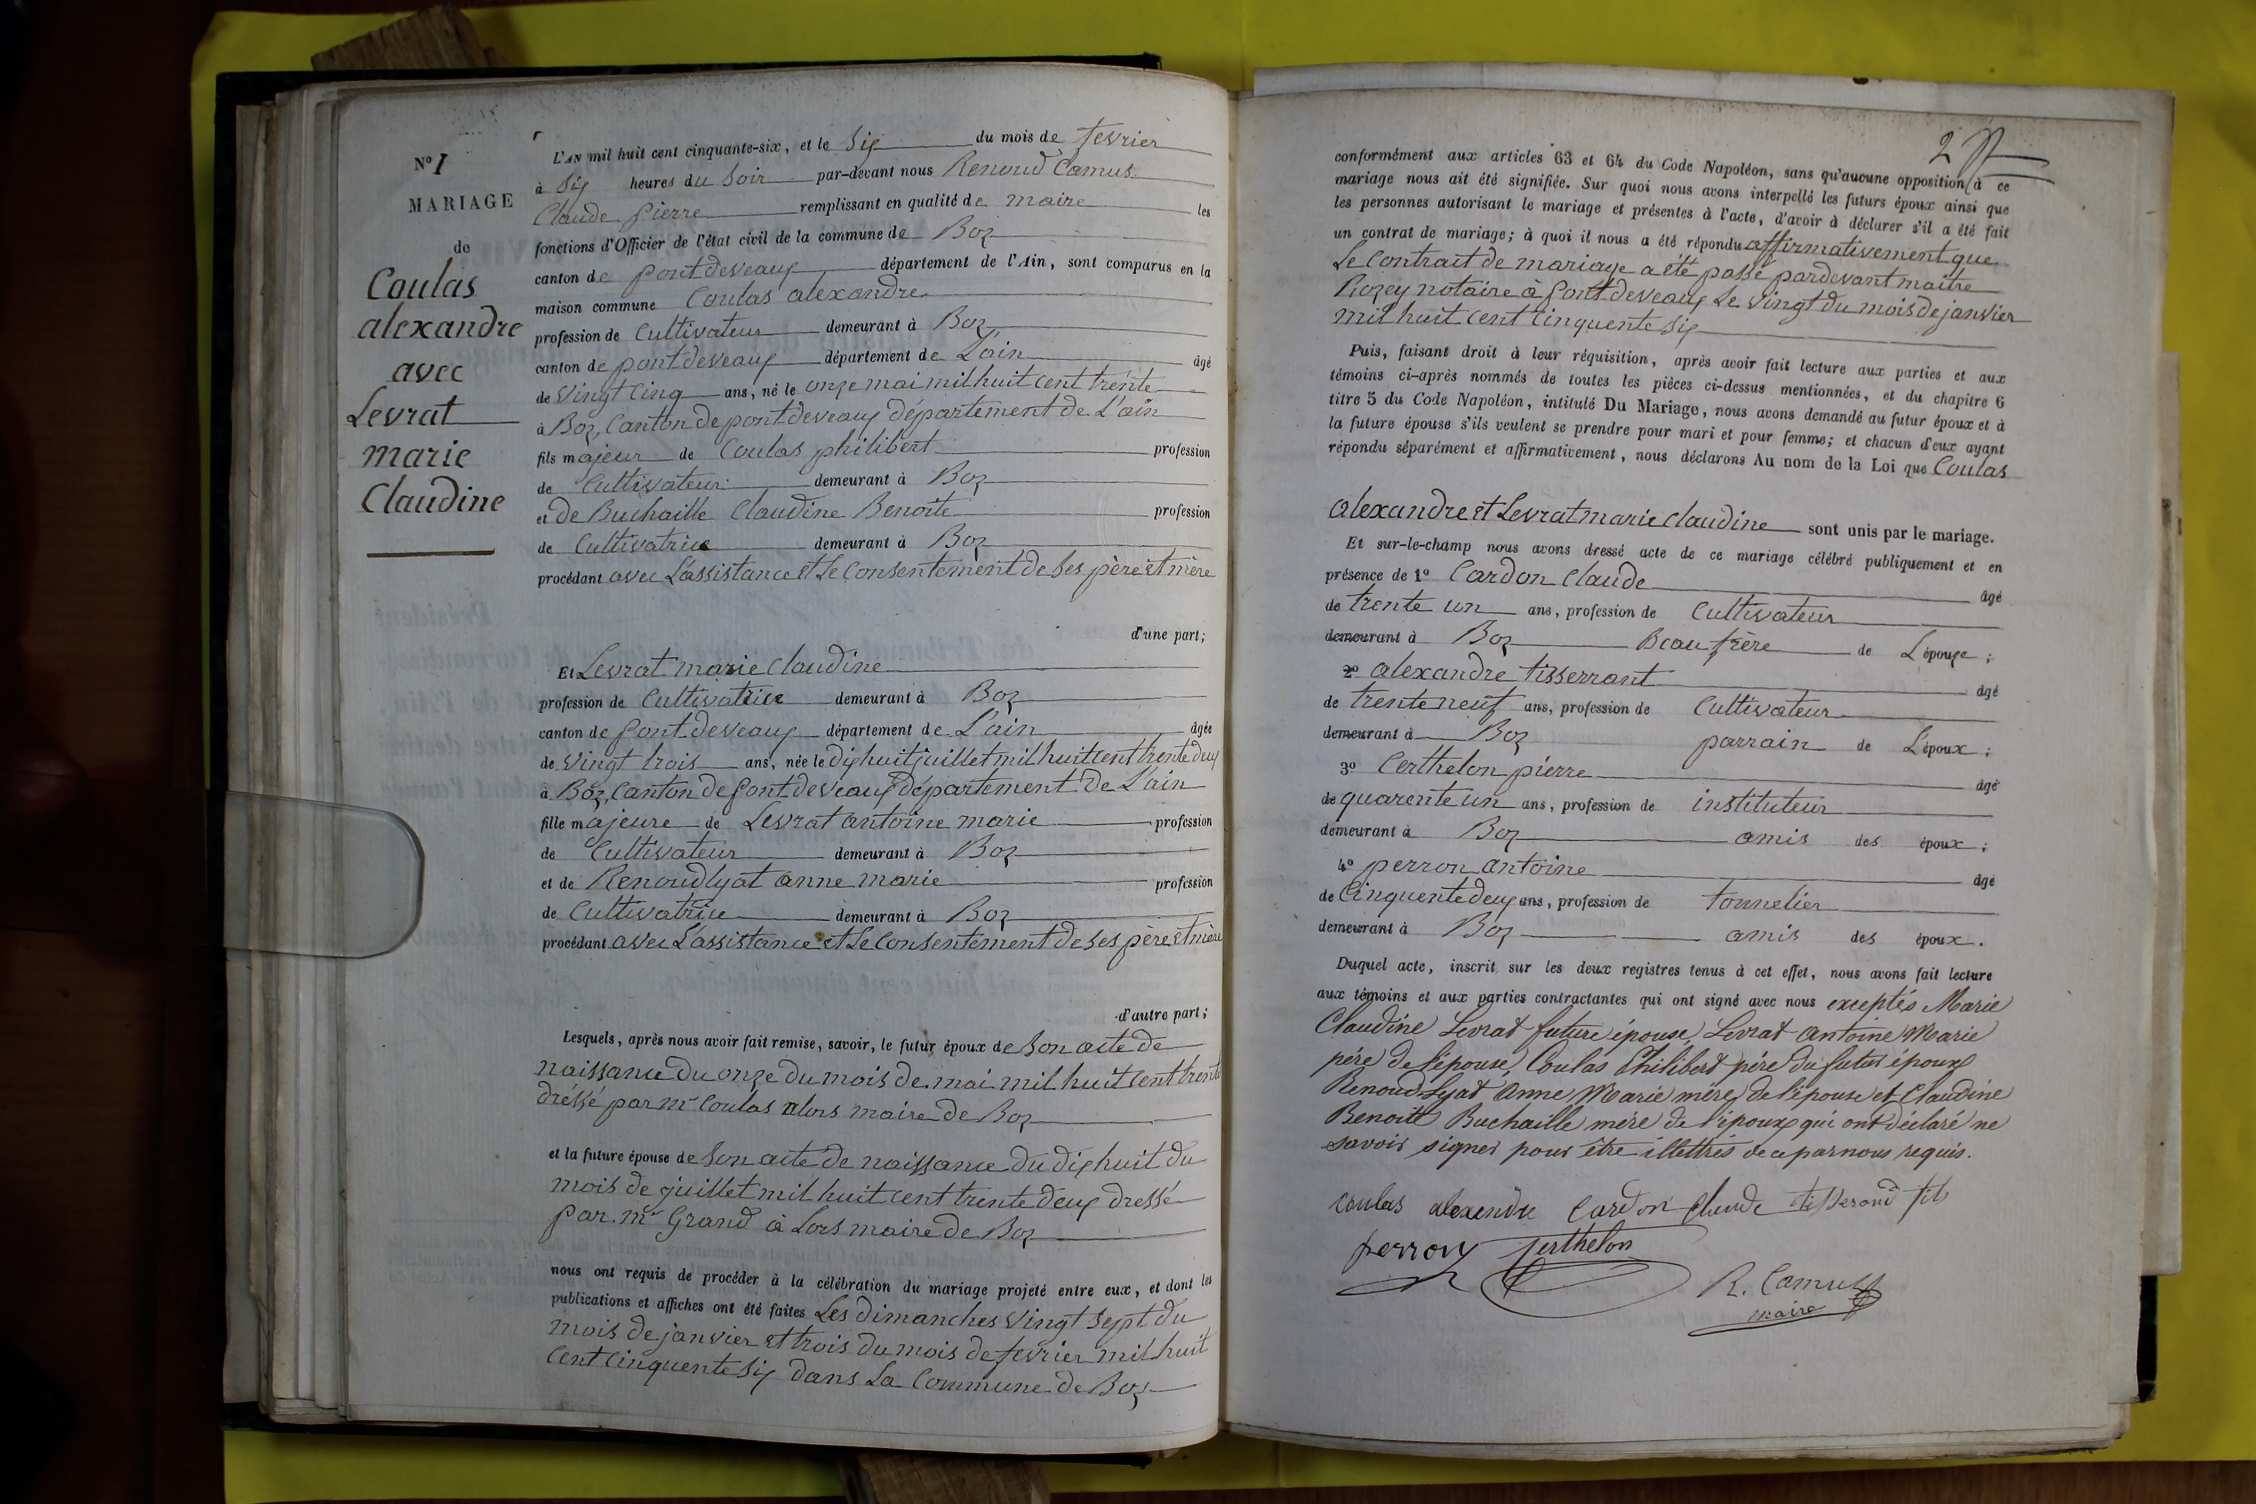 N° 1
MARIAGE
de
Coulas
alexandre
avec
Levrat
marie
Claudine
L'AN mil huit cent cinquante-six, et le Six du mois de fevrier
à Six heures du Soir par-devant nous Renoud Camus
Claude pierre remplissant en qualité de maire les
fonctions d'Officier de l'état civil de la commune de Boz
canton de pontdeveaux département de l'Ain, sont comparus en la
maison commune Coulas alexandre
profession de Cultivateur demeurant à Boz
canton de pontdeveaux département de L'ain âgé
de Vingt Cinq ans, né le onze mai mil huit Cent trente
à Boz, Canton de pontdeveaux département de L'ain
fils majeur de Coulas philibert profession
de Cultivateur demeurant à Boz
et de Buchaille Claudine Benoite profession
de Cultivatrice demeurant à Boz
procédant avec L'assistance et Le Consentement de Ses père et mère
d'une part;
Et Levrat marie Claudine
profession de Cultivatrice demeurant à Boz
canton de pontdeveaux département de L'ain âgée
de Vingt trois ans, née le dix huit juillet mil huit cent trente deux
à Boz, Canton de pont de veaux département de L'ain
fille majeure de Levrat antoine marie profession
de Cultivateur demeurant à Boz
et de Renoudlyat anne marie profession
de Cultivatrice demeurant à Boz
procédant avec L'assistance et Le Consentement de Ses père et mère
d'autre part;
Lesquels, après nous avoir fait remise, savoir, le futur époux de Son acte de
naissance du onze du mois de mai mil huit Cent trente
dréssé par mr Coulas alors maire de Boz
et la future épouse de Son acte de naissance du dix huit du
mois de juillet mil huit cent trente deux dressé
par mr Grand à Lors maire de Boz
nous ont requis de procéder à la célébration du mariage projeté entre eux, et dont les
publications et affiches ont été faites Les dimanches Vingt Sept du
mois de janvier et trois du mois de fevrier mil huit
Cent Cinquente Six dans La Commune de Boz
2
conformément aux articles 63 et 64 du Code Napoléon, sans qu'aucune opposition à ce
mariage nous ait été signifiée. Sur quoi nous avons interpellé les futurs époux ainsi que
les personnes autorisant le mariage et présentes à l'acte, d'avoir à déclarer s'il a été fait
un contrat de mariage; à quoi il nous a été répondu affirmativement que
Le Contrait de mariage a été passé pardevant maitre
Rozey notaire à pontdeveaux Le Vingt du mois de janvier
mil huit Cent Cinquente Six
Puis, faisant droit à leur réquisition, après avoir fait lecture aux parties et aux
témoins ci-après nommés de toutes les pièces ci-dessus mentionnées, et du chapitre 6
titre 5 du Code Napoléon, intitulé Du Mariage, nous avons demandé au futur époux et à
la future épouse s'ils veulent se prendre pour mari et pour femme; et chacun d'eux ayant
répondu séparément et affirmativement, nous déclarons Au nom de la Loi que Coulas
alexandre et Levrat marie Claudine sont unis par le mariage.
Et sur-le-champ nous avons dressé acte de ce mariage célébré publiquement et en
présence de 1° Cardon Claude âgé
de trente un ans, profession de Cultivateur
demeurant à Boz Beau frère de L'épouse;
2° alexandre tisserrant âgé
de trente neuf ans, profession de Cultivateur
demeurant à Boz parrain de L'époux;
3° Certhelon pierre âgé
de quarente un ans, profession de instituteur
demeurant à Boz amis des époux;
4° perron antoine âgé
de Cinquente deux ans, profession de tonnelier
demeurant à Boz amis des époux.
Duquel acte, inscrit sur les deux registres tenus à cet effet, nous avons fait lecture
aux témoins et aux parties contractantes qui ont signé avec nous exceptés Marie
Claudine Levrat future épouse, Levrat Antoine Marie
père de l'épouse, Coulas Philibert père du futur époux
Renoud Lyat Anne Marie mère de l'épouse et Claudine
Benoite Buchaille mère de l'époux qui ont déclaré ne
savoir signer pour être illettrés de ce par nous requis.
Coulas alexendre Cardon Claude tisserand fils
perron Certhelon
R. Camus
maire